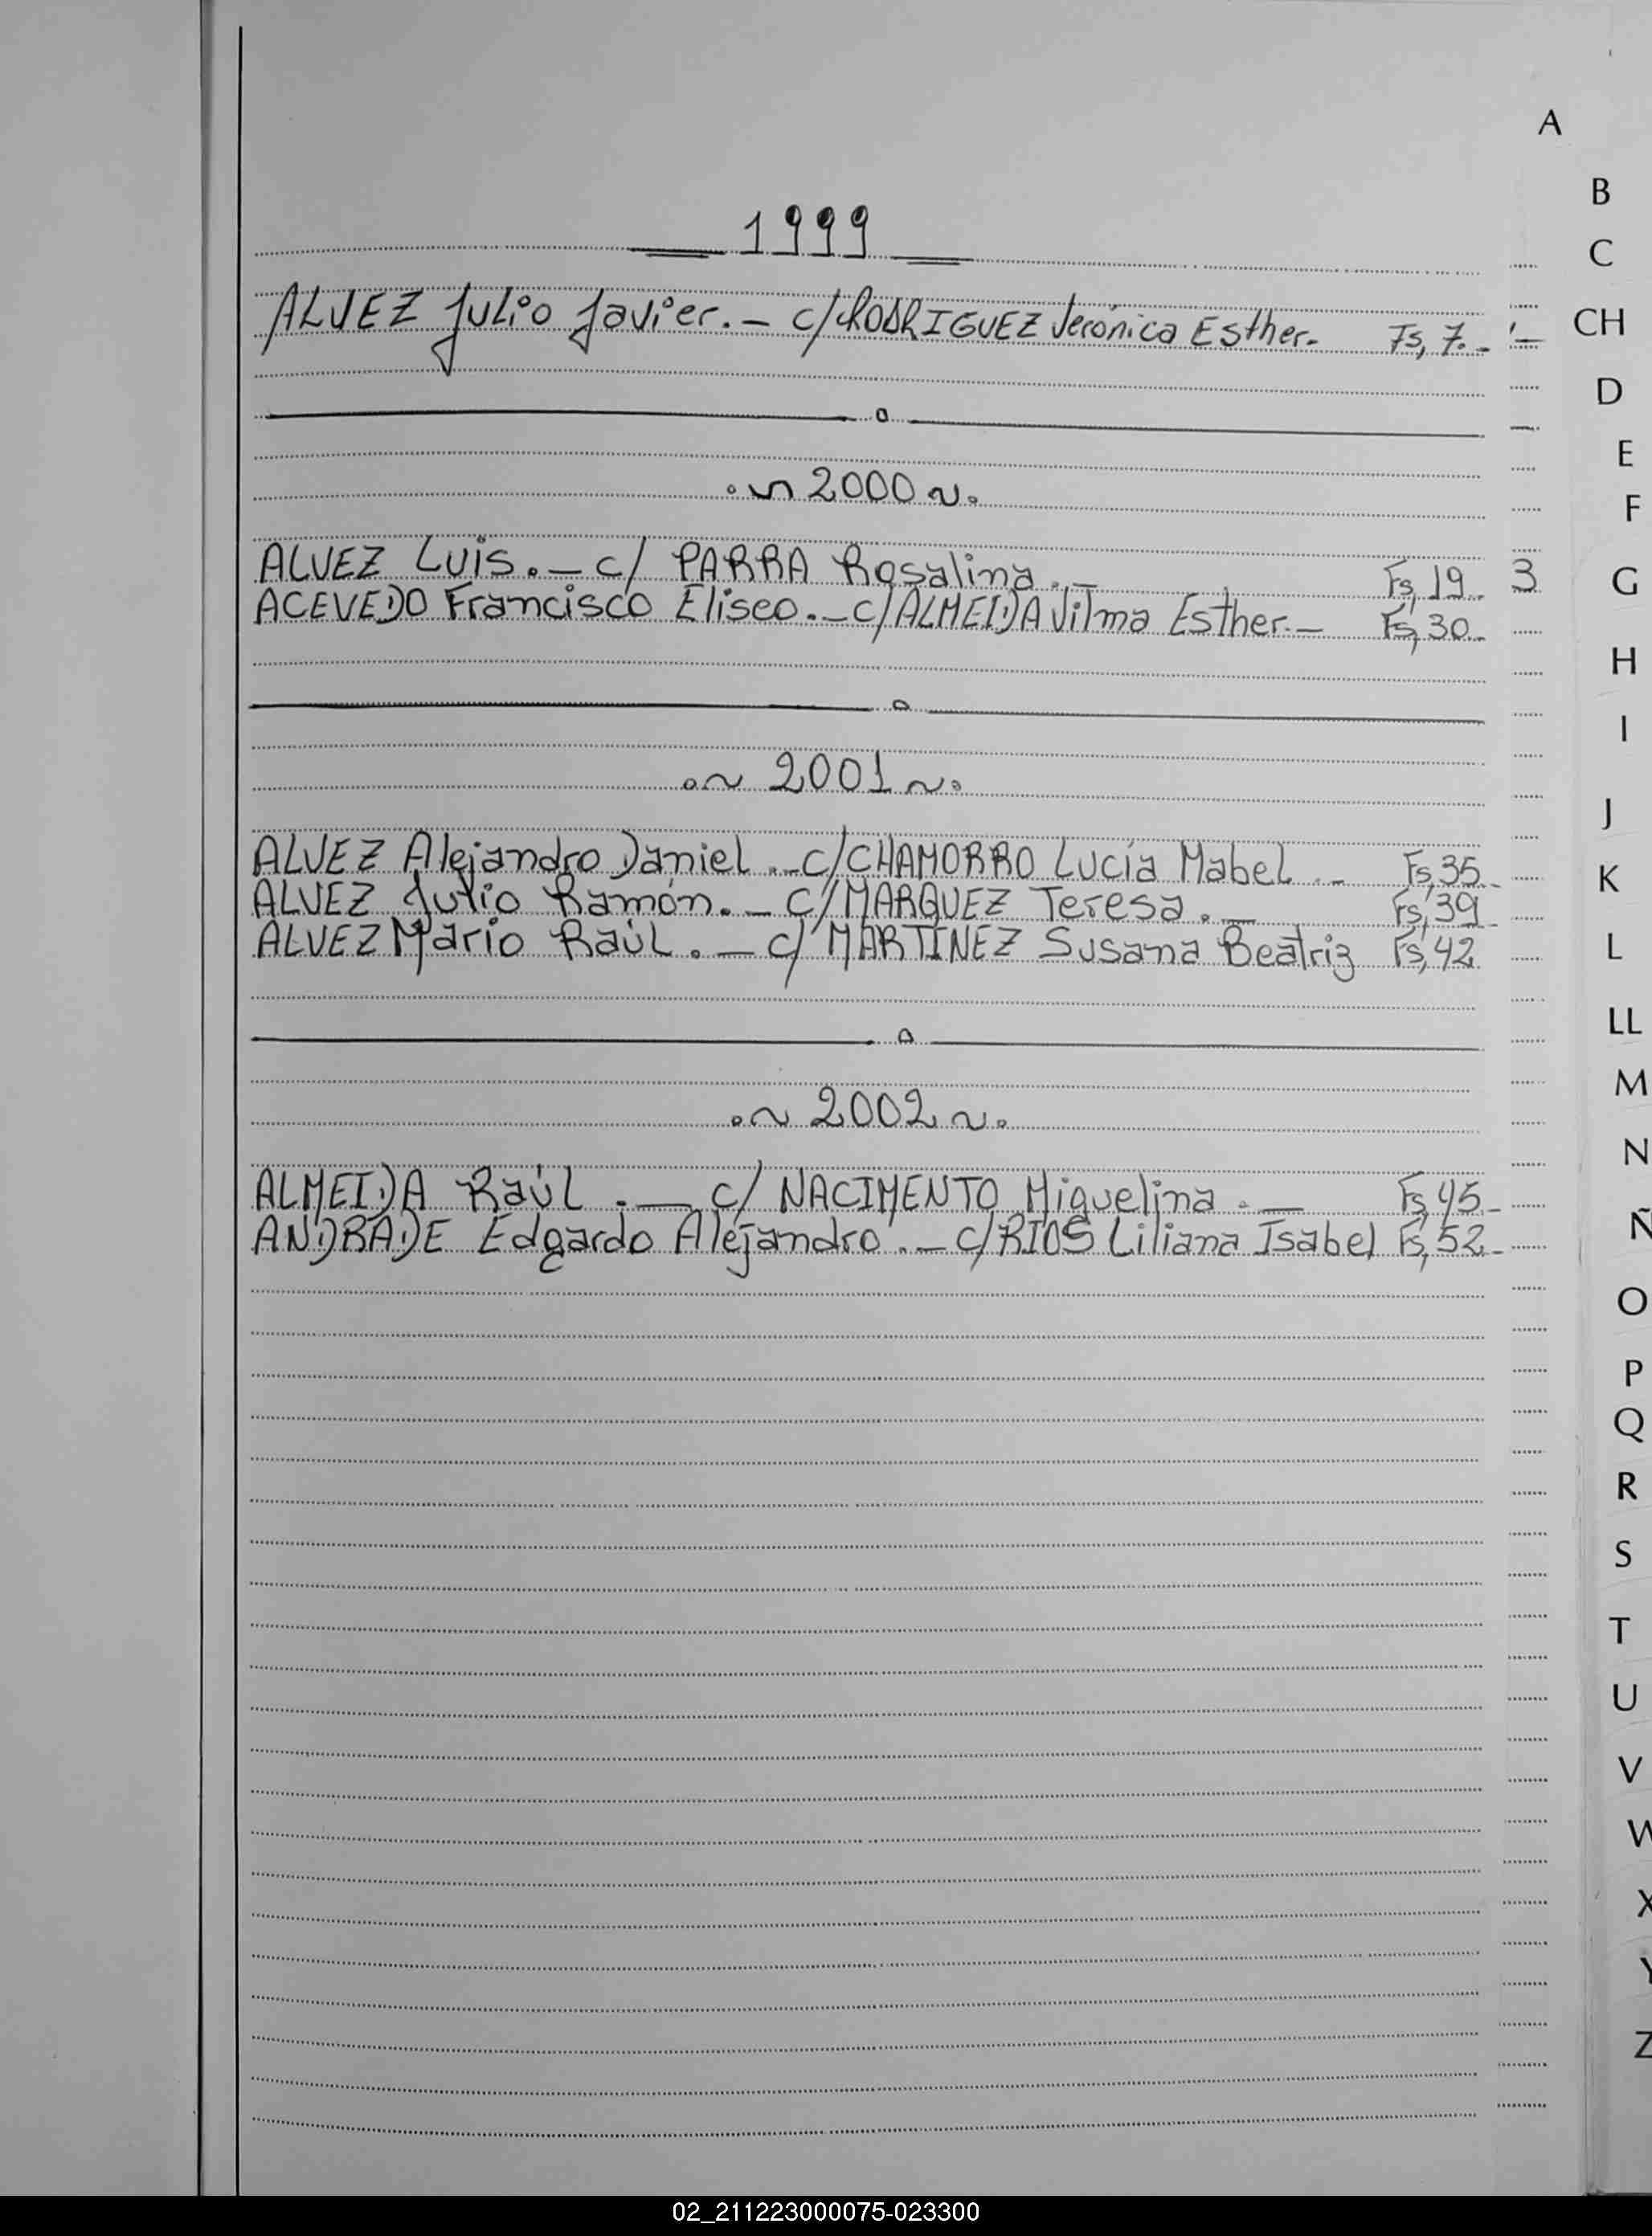 A
B
C
CH
D
E
F
G
H
I
J
K
L
LL
M
N
Ñ
O
P
Q
R
S
T
U
V
W
X
Y
Z
1999
ALVEZ Julio Javier.- c/RODRIGUEZ Verónica Esther.- Fs, 7.-
2000
ALVEZ Luis.- c/ PARRA Rosalina.- Fs, 19 3
ACEVEDO Francisco Eliseo.- c/ALMEIDA Vilma Esther.- Fs, 30
2001
ALVEZ Alejandro Daniel.- c/CHAMORRO Lucía Mabel.- Fs, 35
ALVEZ Julio Ramón.- c/MARQUEZ Teresa.- Fs, 39
ALVEZ Mario Raúl.- c/ MARTINEZ Susana Beatriz Fs, 42
2002
ALMEIDA Raúl.- c/ NACIMENTO Miguelina.- Fs, 45
ANDRADE Edgardo Alejandro.- c/RIOS Liliana Isabel Fs, 52
02_211223000075-023300